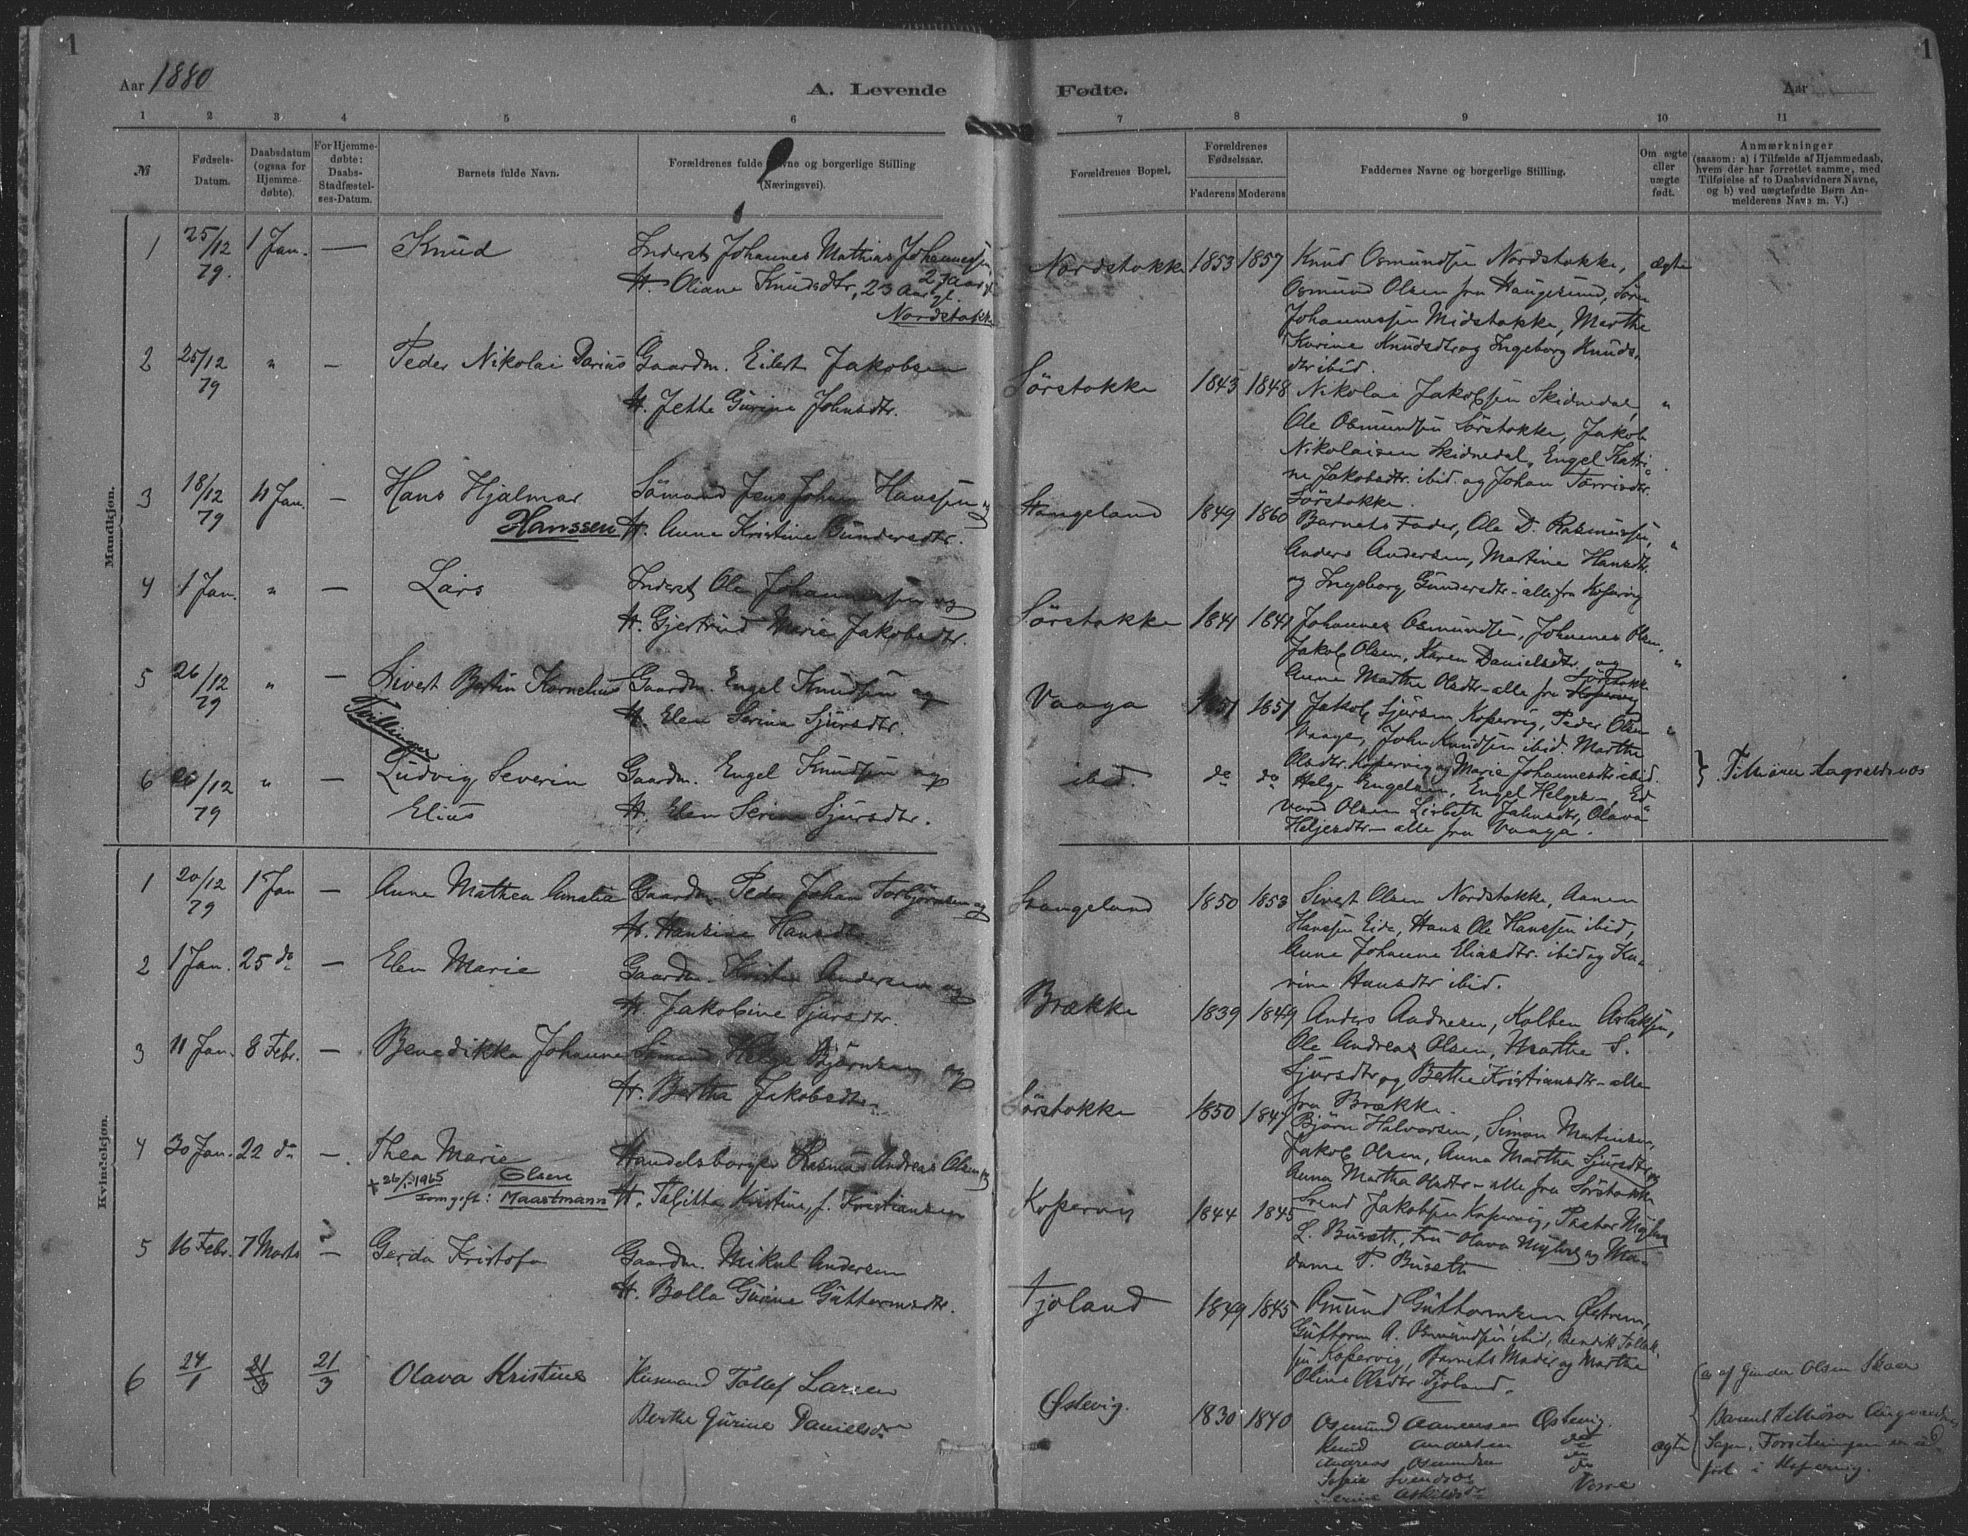 1
1
Aar 1880
A. Levende
Fødte.
Aar
1 2 3 4 5 6 7 8 9 10 11
№
Fødsels-
Datum.
Daabsdatum
(ogsaa for
Hjemme-
døbte).
For Hjemme-
døbte:
Daabs-
Stadfæstel-
ses-Datum.
Barnets fulde Navn.
Forældrenes fulde Navne og borgerlige Stilling
(Næringsvei).
Forældrenes Bopæl.
Forældrenes
Fødselsaar.
Faderens Moderens
Faddernes Navne og borgerlige Stilling.
Om ægte
eller
uægte
født.
Anmærkninger
(saasom: a) i Tilfælde af Hjemmedaab,
hvem der har forrettet samme, med
Tilføielse af to Daabsvidners Navne,
og b) ved uægtefødte Børn An-
melderens Navn m. V.)
Mandkjøn.
1 25/12 79. 1 Jan. — Knud
Inderst Johannes Mathias Johannessen
H. Oliane Knudsdtr, 23 Aar gl.
Nordstokke
Nordstokke 1853 1857
Knud Osmundsen Nordstokke, ægte
Osmund Olsen fra Haugesund, Sören
Johannessen Midstokke, Marthe
Karine Knudsdtr og Ingeborg Knuds-
dtr ibid.
2 25/12 79 " — Peder Nikolai Darius
Gaardm. Eilert Jakobsen
H. Jette Gurine Johnsdtr.
Sörstokke 1843 1848
Nikolai Jakobsen Skidnedal, "
Ole Osmundsen Sörstokke, Jakob
Nikolaisen Skidnedal, Engel Katri-
ne Jakobsdtr. ibid. og Johan
Sörstokke.
3 18/12 79 11 Jan. — Hans Hjalmar
Hanssen
Sömand Jens Johan Hanssen og
H. Anne Kristine Gundersdtr.
Stangeland 1849 1860
Barnets Fader, Ole D. Rasmussen, "
Anders Andersen, Martine Hansdtr.
og Ingeborg Gundersdtr – alle fra Kopervig
4 1 Jan. " — Lars
Inderst Ole Johannessen og
H. Gjertrud Marie Jakobsdtr.
Sörstokke 1841 1841
Johannes Osmundsen, Johannes Olsen, "
Jakob Olsen, Karen Danielsdtr. og
Anne Marthe Olsdtr – alle fra Kopervig Sörstokke
5 26/12 79 " — Sivert Bertin Kornelius
Tvillinger
Gaardm. Engel Knudsen og
H. Elen Serina Sjursdtr.
Vaaga 1851 1851
Jakob Sjursen Kopervig, Peder Olsen "
Vaage, John Knudsen ibid. Marthe
Olsdtr Kopervig og Marie Johannesdtr ibid.
6 26/12 79 " — Ludvig Severin
Elius
Gaardm. Engel Knudsen og
H. Elen Serina Sjursdtr.
ibid. do do
Helge Engelsen, Engel Helgesen, Ed-
vard Olsen Lisbeth Johnsdtr, Olava
Heljesdtr – alle fra Vaaga.
Kvindekjøn.
1 20/12 79 1 Jan — Anne Mathea Amalia
Gaardm. Peder Johan Torbjörnsen og
H. Hansine Hansdtr.
Stangeland 1850 1853
Sivert Olsen Nordstokke, Aanen
Hanssen Eide, Hans Ole Hanssen ibid,
Anne Johanna Eliasdtr. ibid og Ka-
rine Hansdtr ibid.
2 1 Jan. 25 do — Elen Marie
Gaardm. Kristen Andersen og
H. Jakobine Sjursdtr.
Brække 1839 1849
Anders Aadnesen, Kolben Aslaksen,
Ole Andreas Olsen, Marthe S.
Sjursdtr og Berthe Kristiansdtr – alle
fra Brække.
3 11 Jan. 8 Febr. — Benedikka Johanne
Sömand Helge Bjørnsen og
H. Bertha Jakobsdtr.
Sörstokke 1850 1847
Björn Halvorsen, Simon Martinsen,
Jakob Olsen, Anna Martha Sjursdtr og
Anna Martha Olsdtr – alle fra Sörstokke
4 30 Jan. 22 do — Thea Marie
Olsen
+ 26/1-1965
som gift: Maastmann
Handelsborger Rasmus Andreas Olsen og
H. Talitta Kristine, f. Kristiansen
Kopervig 1844 1845
Svend Jakobsen Kopervig, Pastor Myhre
L. Buseth, Fru Olava Myhre og Ma-
dame P. Buseth
5 16 Febr. 7 Marts — Gerda Kristofa
Gaardm. Mikal Andersen
H. Bolla Gurine Guttormsdtr.
Tjoland 1849 1845
Osmund Guttormsen Østrem,
Guttorm A. Osmundsen ibid, Bendik Tollak-
sen Kopervig, Barnets Moder og Marthe
Oline Olsdtr Tjoland.
6 24/1 21/3 21/3 Olava Kristine
Husmand Tollef Larsen
Berthe Gurine Danielsdr
Østevig. 1830 1840
Osmund Aanensen Østevig.
Knud Andersen do
Andreas Osmundsen do
Sofie Svendsdr
Serine Vorre
ægte
} Tilhører Aagvaldsnes
{ a. af Gunder Olsen Skaar
Barnet tilhører Augvaldsnes
Sogn. Forretningen er ud-
ført i Kopervig.